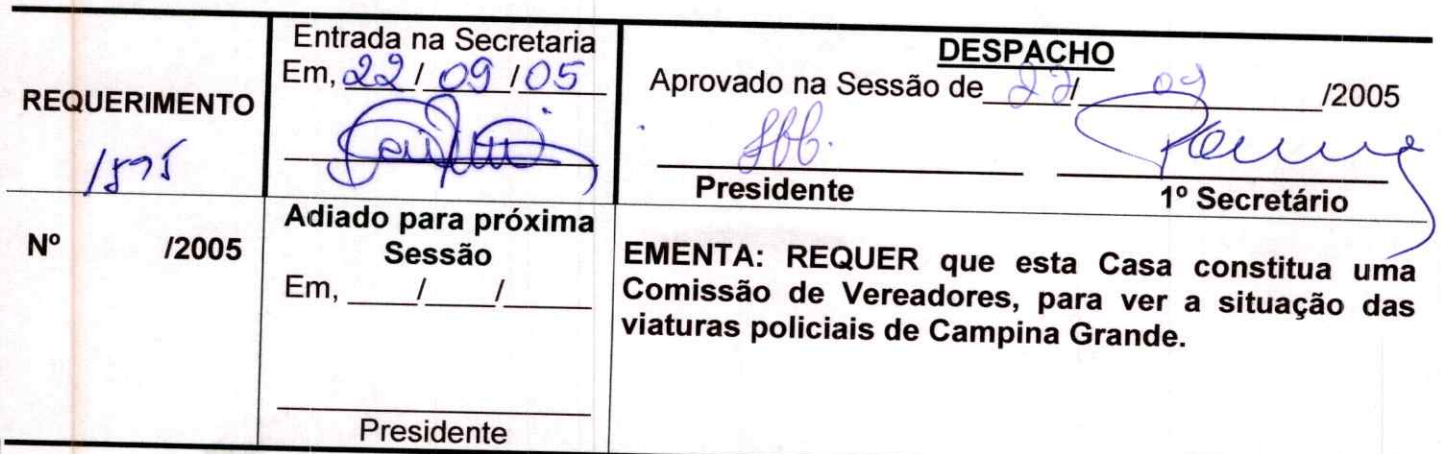 REQUERIMENTO
Nº /2005
Entrada na Secretaria
Em, 22/09/05
Adiado para próxima
Sessão
Em, ____/____/_____
Presidente
DESPACHO
Aprovado na Sessão de 22/09/2005
Presidente
1º Secretário
EMENTA: REQUER que esta Casa constitua uma
Comissão de Vereadores, para ver a situação das
viaturas policiais de Campina Grande.